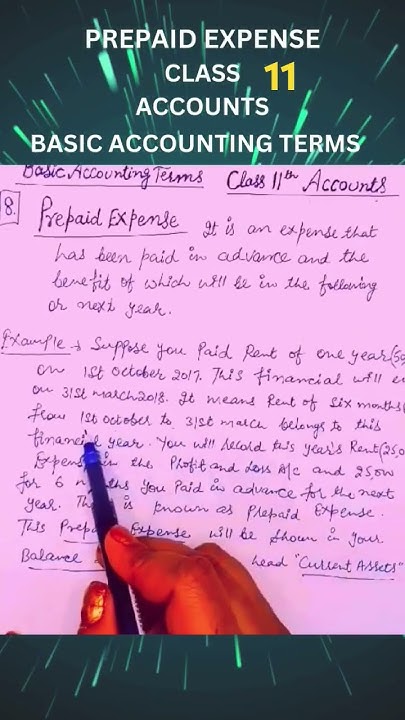 PREPAID EXPENSE
CLASS 11
ACCOUNTS
BASIC ACCOUNTING TERMS
Basic Accounting Terms Class 11th Accounts
8. Prepaid Expense It is an expense that
has been paid in advance and the
benefit of which will be in the following
or next year.
Example → Suppose you Paid Rent of one year(50
on 1st October 2017. This financial will e
on 31st march 2018. It means Rent of Six months(
from 1st october to 31st march belongs to this
financial year. You will record this year's Rent(25,0
Expense in the Profit and Loss A/c and 25,00
for 6 you Paid in advance for the next
year. is known as Prepaid Expense.
This Expense will be shown in your
Balance head "Current Assets"